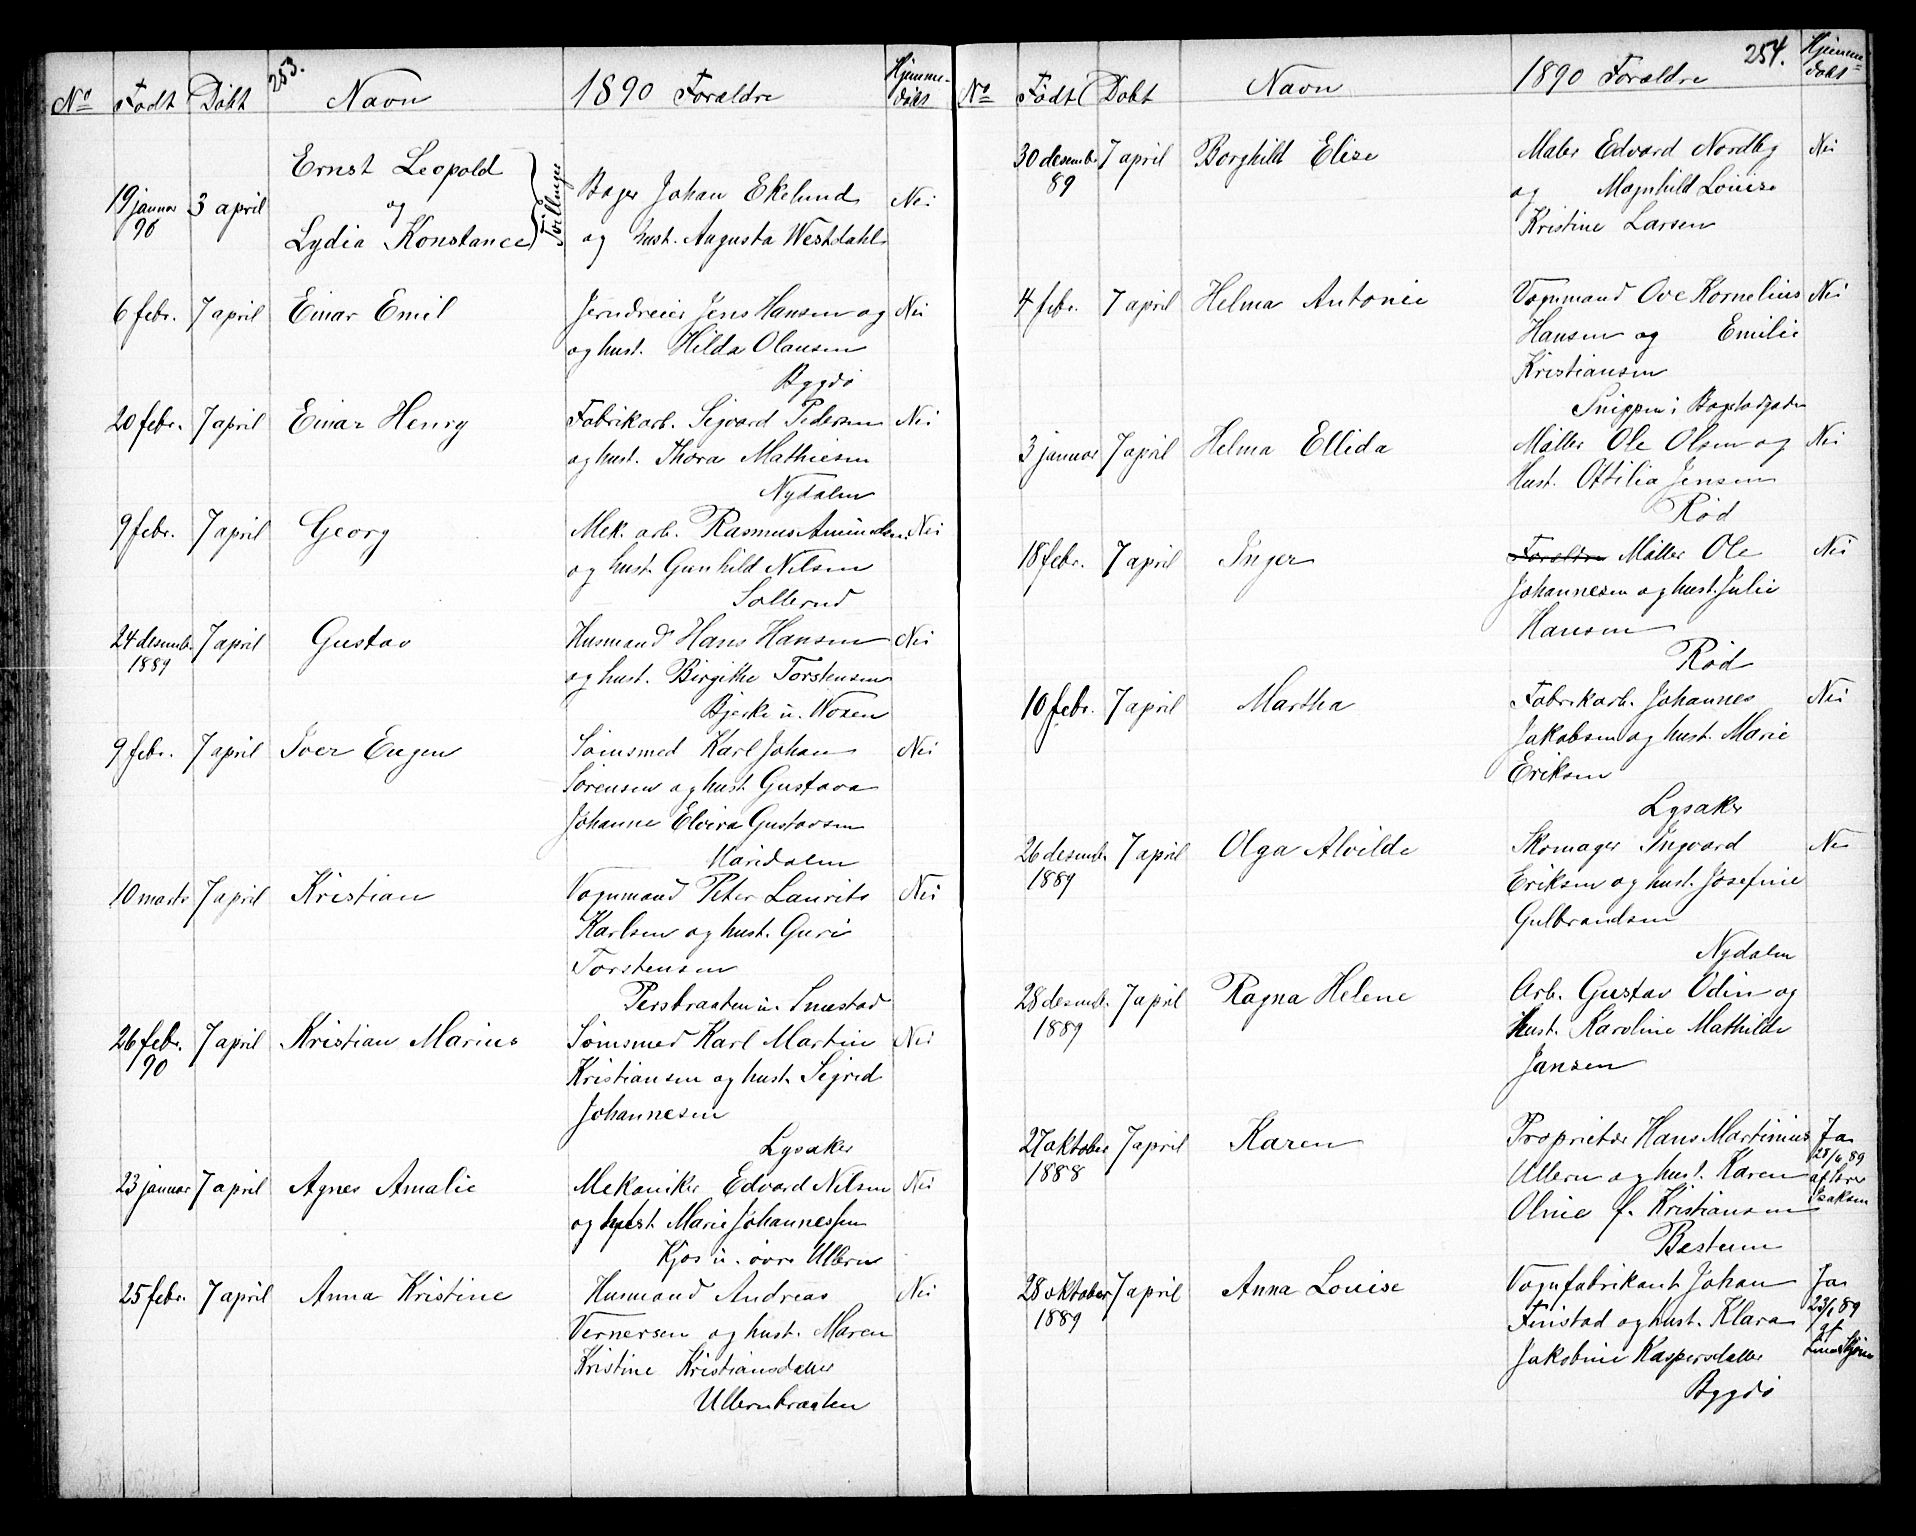 253.
No Født Døbt Navn 1890 Forældre Hjemme-
døbt
19 januar 3 april Ernst Leopold Bager Johan Ekelund Nei
90 og og hust. Augusta Westdahl
Lydia Konstance Tvillinger
6 febr. 7 april Einar Emil Jerndreier Jens Hansen og Nei
og hust. Hilda Olausen
Bygdø
20 febr. 7 april Einar Henry Fabrikarb. Sigvard Pedersen Nei
og hust. Thora Mathiesen
Nydalen
9 febr. 7 april Georg Mek. arb. Rasmus Amundsen Nei
og hust. Gunhild Nilsen
Sollerud
24 desemb. 7 april Gustav Husmand Hans Hansen Nei
1889 og hust. Birgithe Torstensen
Bjerke u. Voxen
9 febr. 7 april Iver Eugen Sømsmed Karl Johan Nei
Sørensen og hust. Gustava
Johanne Elvira Gustavsen
Maridalen
10 marts 7 april Kristian Vognmand Peter Laurits Nei
Karlsen og hust. Guri
Torstensen
Persbraaten u. Smestad
26 febr. 7 april Kristian Marius Sømsmed Karl Martin Nei
90 Kristiansen og hust. Sigrid
Johannesen
Lysaker
23 januar 7 april Agnes Amalie Mekaniker Edvard Nilsen Nei
og hust. Marie Johannessen
Kjos u. øvre Ullern
25 febr. 7 april Anna Kristine Husmand Andreas Nei
Vernersen og hust. Maren
Kristine Kristiansdatter
Ullernbraaten
254.
No Født Døbt Navn 1890 Forældre Hjemme-
døbt
30 desember 7 april Borghild Elise Maler Edvard Nordby Nei
89 og Magnhild Louise
Kristine Larsen
4 febr. 7 april Helma Antonie Vognmand Ove Kornelius Nei
Hansen og Emilie
Kristiansen
Snippen i Bogstadgaden
3 januar 7 april Helma Ellida Møller Ole Olsen og Nei
Hust. Ottilia Jensen
Rød
18 febr. 7 april Inger Forældre Møller Ole Nei
Johannesen og hust. Julie
Hansen
Rød
10 febr. 7 april Martha Fabrikarb. Johannes Nei
Jakobsen og hust. Marie
Eriksen
Lysaker
26 desember 7 april Olga Alvilde Skomager Ingvard Nei
1889 Eriksen og hust. Josefine
Gulbrandsen
Nydalen
28 desemb. 7 april Ragna Helene Arb. Gustav Odin og
1889 hust. Karoline Mathilde
Jansen
27 oktober 7 april Karen Proprietær Hans Martinius Ja
1888 Ullern og hust. Karen 28/6 89
Oline f. Kristiansen af
Isaksen
Bestum
28 oktober 7 april Anna Louise Vognfabrikant Johan Ja
1889 Finstad og hust. Klara 89
Jakobine Kaspersdatter af
Bygdø